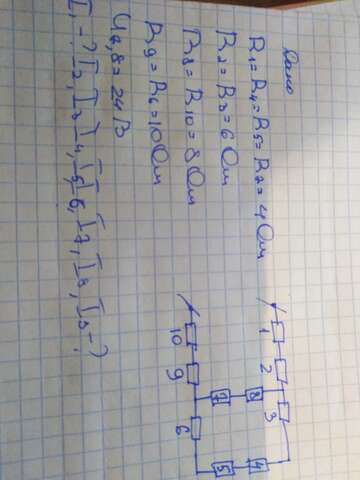 Дано
R1=R4=R5=R7=4Ом
R2=R3=6Ом
R8=R10=8Ом
R9=R6=10Ом
U7,8=24В
I1-? I2, I3, I4, I5, I6, I7, I8, I9-?
1 2 3
7 8
5 4
10 9 6